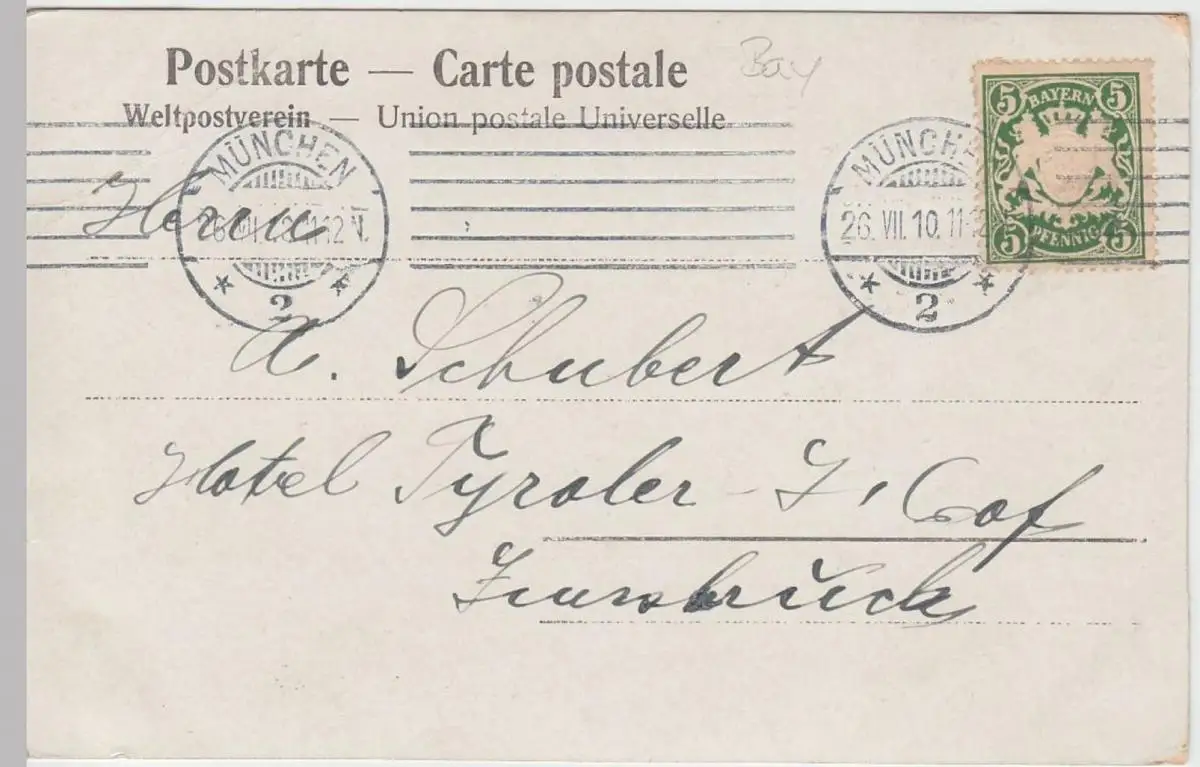 Postkarte — Carte postale
Bay
Weltpostverein — Union postale Universelle
5 BAYERN 5
5 PFENNIG 5
MÜNCHEN
2
MÜNCHEN
26. VII. 10. 11-12
2
Herrn
A. Schubert
Hotel Tyroler-Hof
Innsbruck